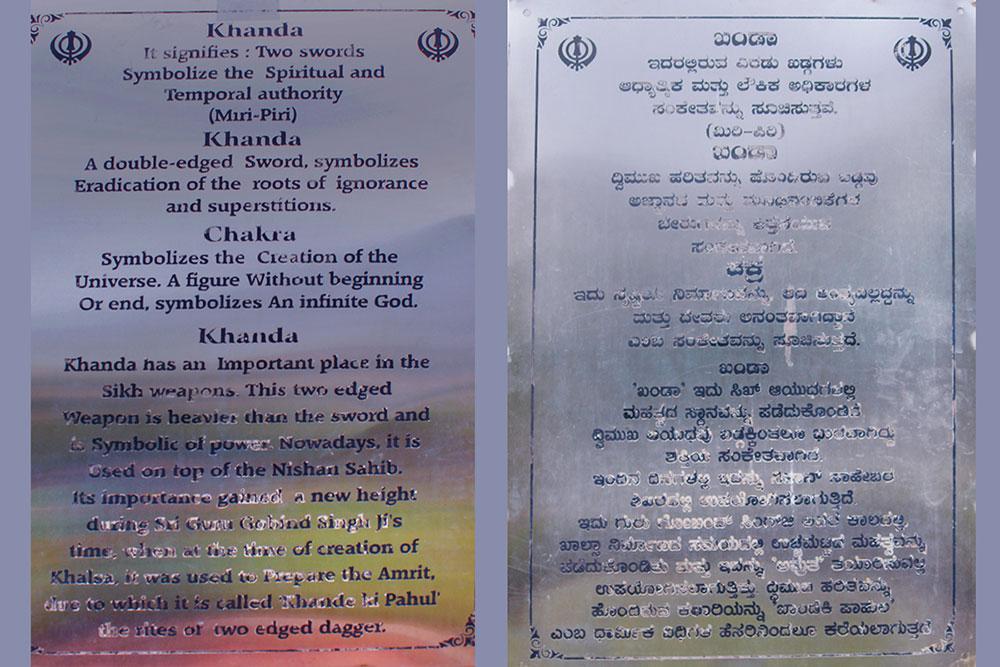 Khanda
It signifies : Two swords
Symbolize the Spiritual and
Temporal authority
(Miri-Piri)
Khanda
A double-edged Sword, symbolizes
Eradication of the roots of ignorance
and superstitions.
Chakra
Symbolizes the Creation of the
Universe. A figure Without beginning
Or end, symbolizes An infinite God.
Khanda
Khanda has an Important place in the
Sikh weapons. This two edged
Weapon is heavier than the sword and
is Symbolic of power. Nowadays, it is
Used on top of the Nishan Sahib.
Its importance gained a new height
during Sri Guru Gobind Singh Ji's
time, when at the time of creation of
Khalsa, it was used to Prepare the Amrit,
due to which it is called 'Khande ki Pahul'
the rites of two edged dagger.
ಖಂಡಾ
ಇದರಲ್ಲಿರುವ ಎರಡು ಖಡ್ಗಗಳು
ಆಧ್ಯಾತ್ಮಿಕ ಮತ್ತು ಲೌಕಿಕ ಅಧಿಕಾರಗಳ
ಸಂಕೇತವನ್ನು ಸೂಚಿಸುತ್ತವೆ.
(ಮಿರಿ-ಪಿರಿ)
ಖಂಡಾ
ದ್ವಿಮುಖ ಹರಿತವನ್ನು ಹೊಂದಿರುವ ಖಡ್ಗವು
ಅಜ್ಞಾನದ ಮತ್ತು
ಚಕ್ರ
ಇದು ಸೃಷ್ಟಿಯ
ಮತ್ತು ದೇವರು ಅನಂತವಾಗಿದ್ದಾನೆ
ಎಂಬ ಸಂಕೇತವನ್ನು ಸೂಚಿಸುತ್ತದೆ.
ಖಂಡಾ
'ಖಂಡಾ' ಇದು ಸಿಖ್ ಆಯುಧಗಳಲ್ಲಿ
ಮಹತ್ವದ ಸ್ಥಾನವನ್ನು ಪಡೆದುಕೊಂಡಿದೆ
ದ್ವಿಮುಖ
ಶಕ್ತಿಯ ಸಂಕೇತವಾಗಿದೆ.
ಇಂದಿನ ದಿನಗಳಲ್ಲಿ ಇದನ್ನು ನಿಶಾನ್ ಸಾಹೇಬರ
ಉಪಯೋಗಿಸಲಾಗುತ್ತಿದೆ.
ಇದು ಗುರು ಗೋಬಿಂದ್ ಸಿಂಗ್‌ಜಿ ಕಾಲದಲ್ಲಿ,
ಖಾಲ್ಸಾ ನಿರ್ಮಾಣದ ಸಮಯದಲ್ಲಿ ಮಹತ್ವವನ್ನು
ಪಡೆದುಕೊಂಡಿತು ಮತ್ತು ಇದನ್ನು
ಉಪಯೋಗಿಸಲಾಗುತ್ತಿತ್ತು ದ್ವಿಮುಖ ಹರಿತವನ್ನು
ಹೊಂದಿರುವ ಕಠಾರಿಯನ್ನು
ಎಂಬ ಧಾರ್ಮಿಕ ವಿಧಿಗಳ ಹೆಸರಿನಿಂದಲೂ ಕರೆಯಲಾಗುತ್ತದೆ